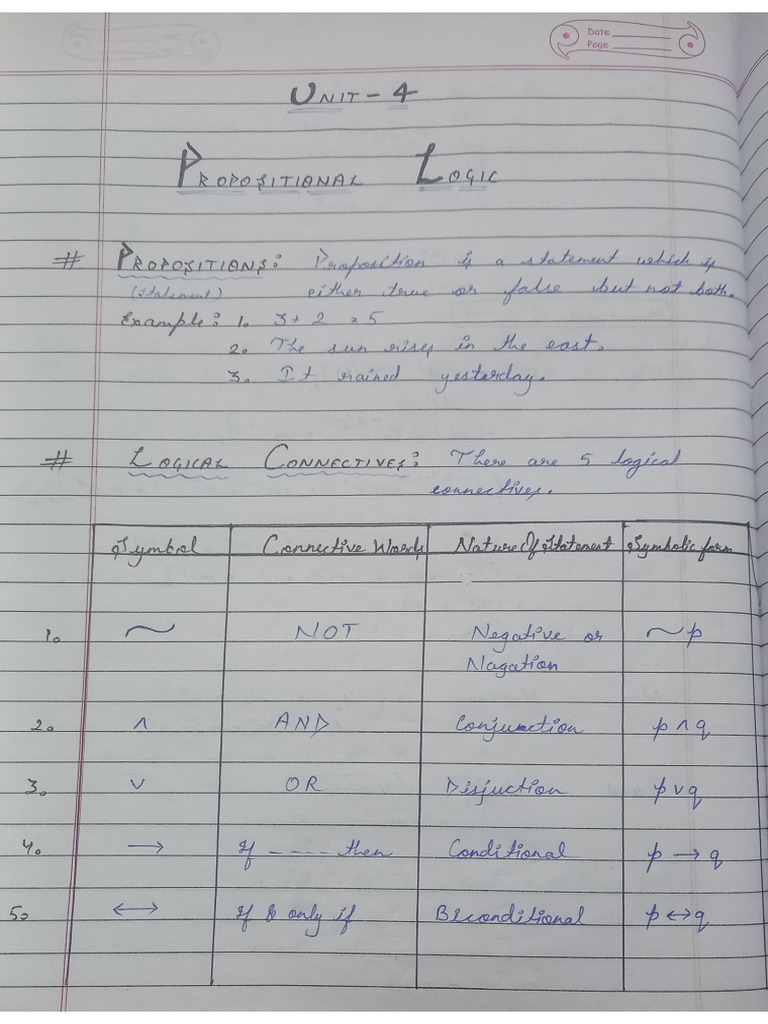 Date
Page
UNIT - 4
PROPOSITIONAL LOGIC
# PROPOSITIONS: Proposition is a statement which is
(Statement) either true or false but not both.
Example: 1. 3+2 = 5
2. The sun rises in the east.
3. It rained yesterday.
# LOGICAL CONNECTIVES: There are 5 logical
connectives.
Symbol Connective Words Nature Of Statement Symbolic form
1. ~ NOT Negative or ~p
Nagation
2. ∧ AND Conjunction p ∧ q
3. ∨ OR Disjuction p ∨ q
4. → If ----- then Conditional p → q
5. ↔ If & only if Biconditional p ↔ q